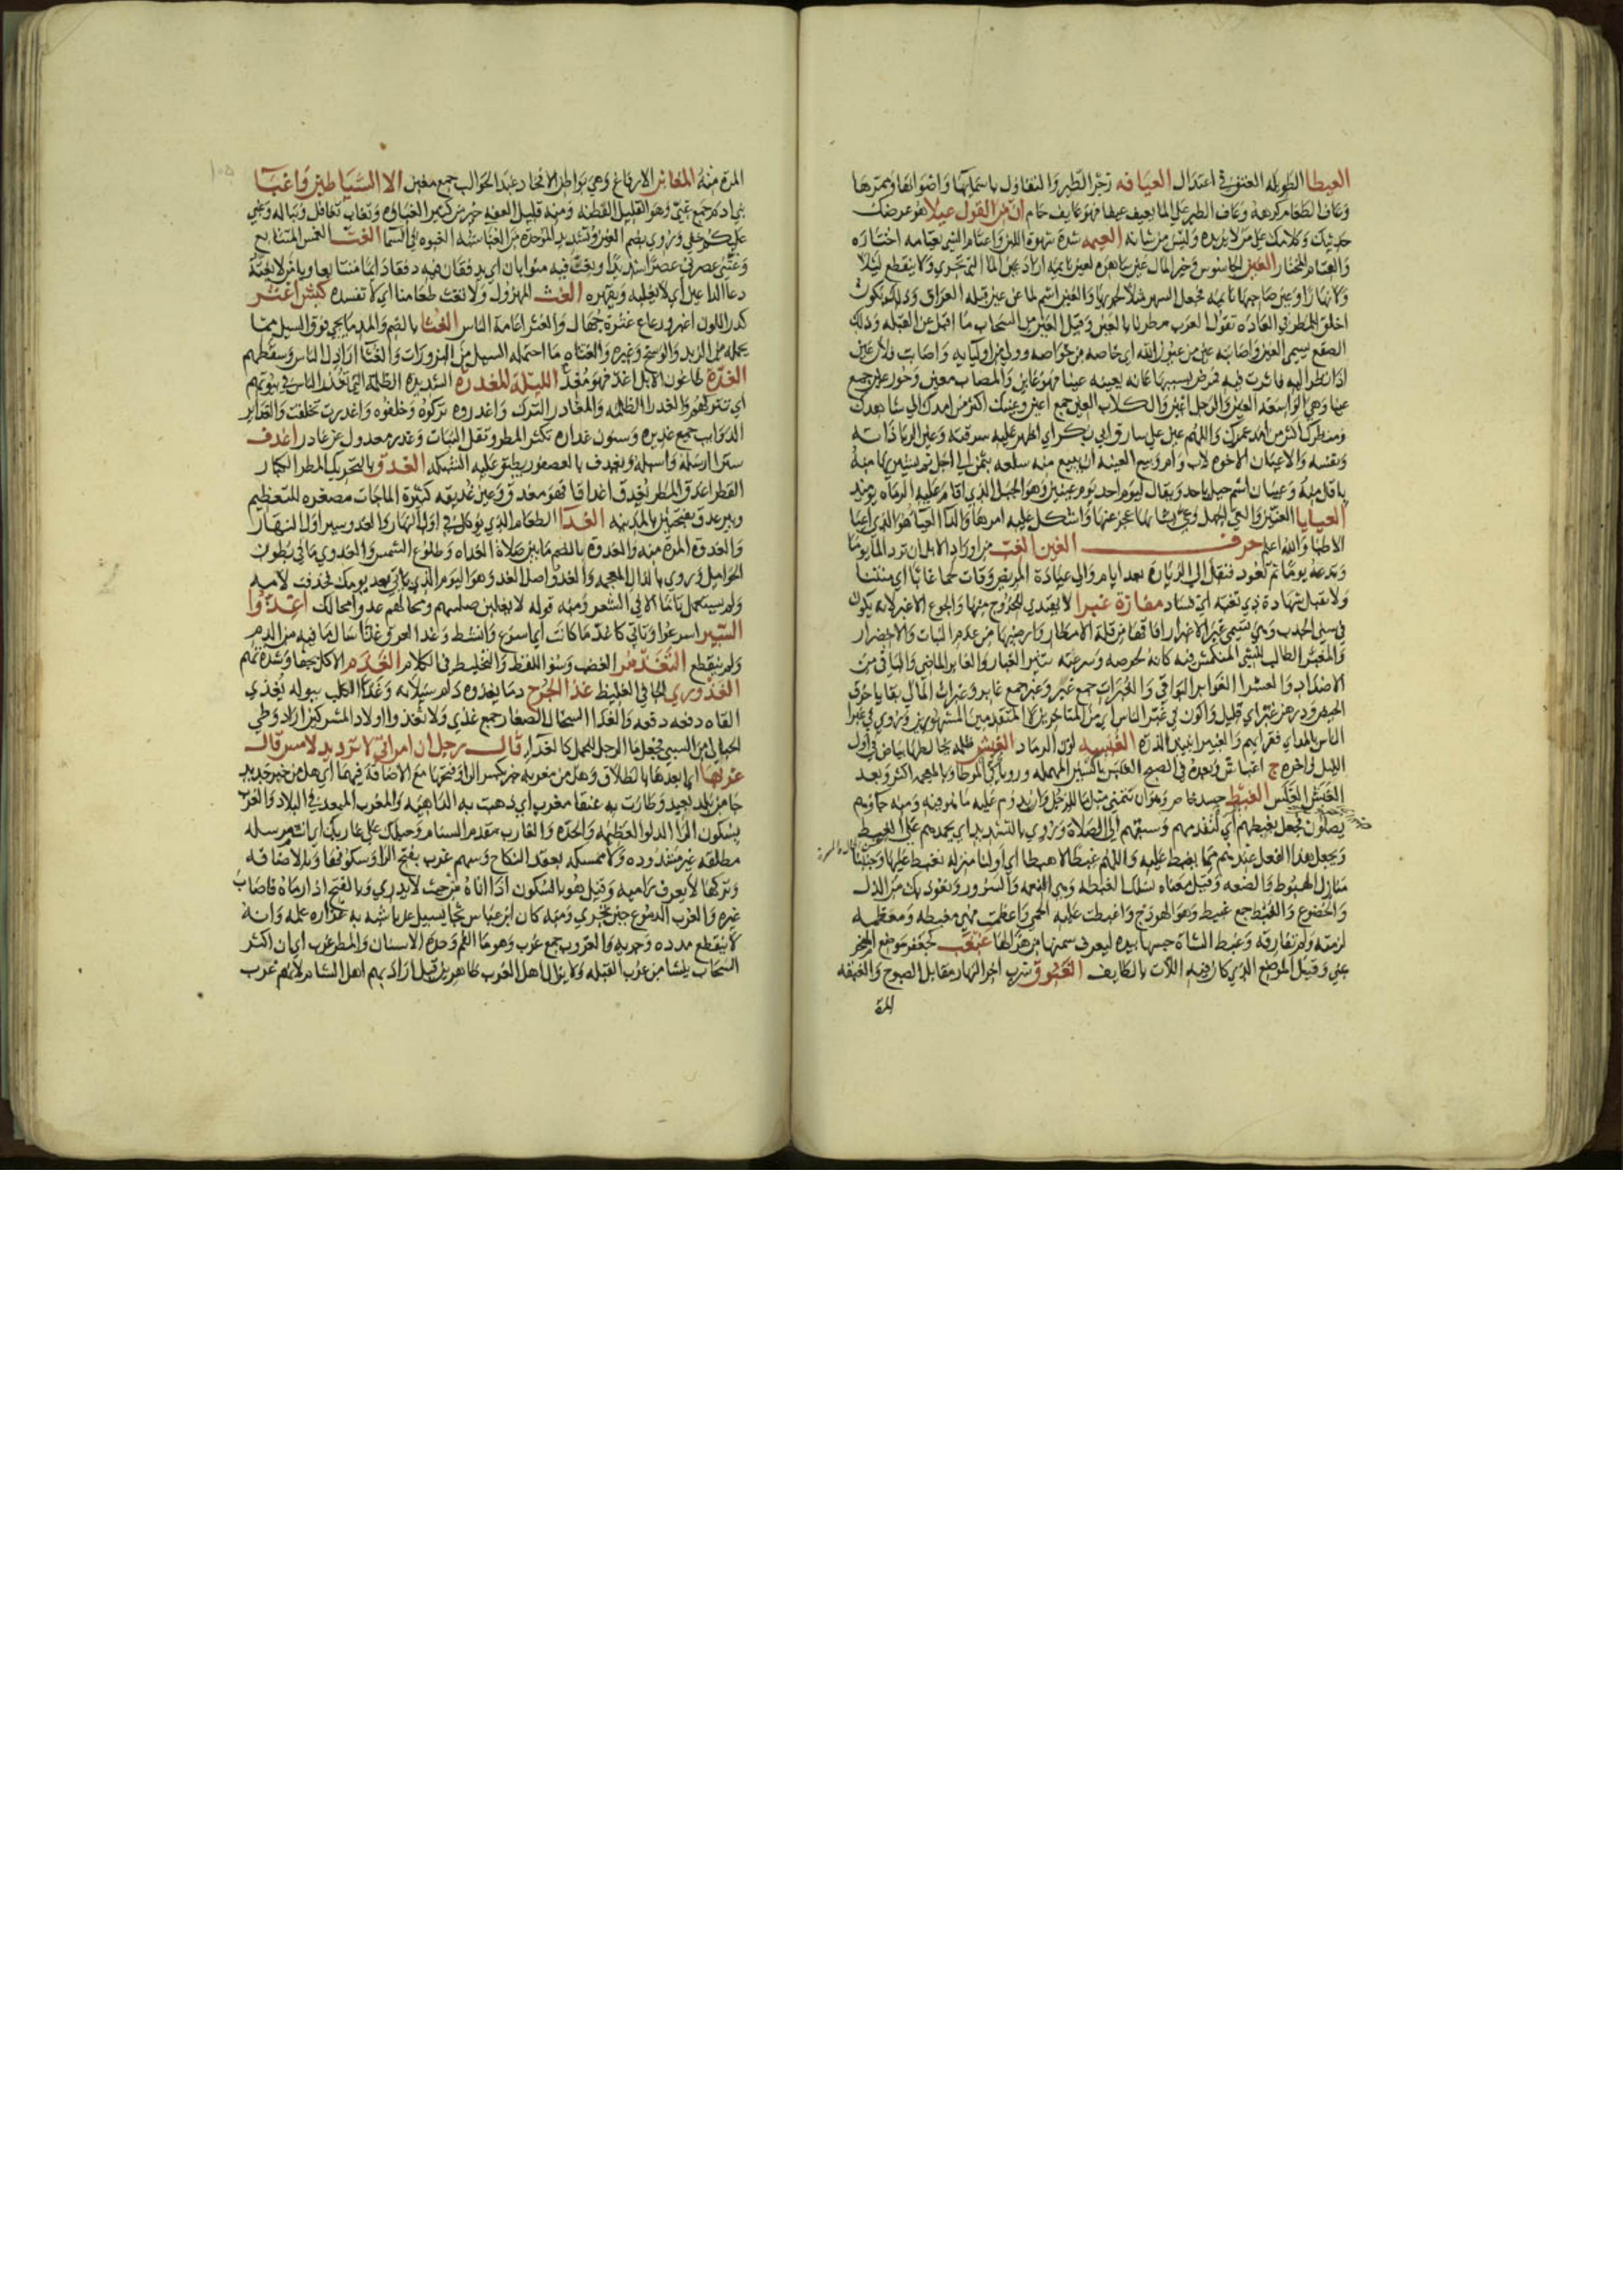 العيطا الطويله العنق في اعتدال العيافه زجر الطير والتفاول باسمائها واصواتها وممرها
وعاف الطعام كرهه وعاف الطير على الماء يعيف عيفا فهو عايف حام ان من القول عيلا هو عرضك
حديثك وكلامك على من لا يريده وليس من شانه العيمه شدة شهوة اللبن واعتام الشي يعتامه اختاره
والعيام المختار العين الجاسوس وخير المال عين ساهره لعين نايمه اراد عين الماء التي تجري ولا ينقطع ليلا
ونهارا وعين صاحبها نايمه فجعل السهر مثلا لجريها والعين اسم لما عن يمين قبلة العراق وذلك يكون
اخلق للمطر في العاده تقول العرب مطرنا بالعين وقيل العين من السحاب ما اقبل عن القبله وذلك
الصقع يسمى العين واصابته عين من عيون الله اي خاصه من خواصه وولي من اوليايه واصابت فلانا عين
اذا نظر اليه فاثرت فيه فمرض بسببها عانه يعينه عينا فهو عاين والمصاب معين وحور عين جمع
عينا وهي الواسعه العين والرجل اعين والكلاب العين جمع اعين وعينك اكبر من امدك اي شاهدك
ومنظرك اكبر من امد عمرك واللهم عين على سارق ابي بكر اي اظهر عليه سرقته وعين الربا ذاته
ونفسه والاعيان الاخوه لاب وام وبيع العينه ان يبيع منه سلعه بثمن الى اجل ثم يشتريها منه
باقل منه وعينان اسم جبل باحد ويقال ليوم احد يوم عينين وهو الجبل الذي اقام عليه الرماه يوميذ
العيايا العنين والعي الجهل وعي بشانها عجز عنها واشكل عليه امرها والداء العيا هو الذي اعيا
الاطبا والله اعلم حرف الغين الغب من اوراد الابل ان ترد الماء يوما
وتدعه يوما ثم تعود فنقل الى الزياره بعد ايام والى عيادة المريض وقات لحما غابا اي منتنا
ولا تقبل شهادة ذي تغبه اي فساد مفازة غبرا لا يهتدي للخروج منها والجوع الاغبر لانه يكون
في سني الجدب وهي تسمى غبرا لاغبرار افاقها من قلة الامطار وارضيها من عدم النبات والاخضرار
والمغبر الطالب للشي المنكمش فيه كانه لحرصه وسرعته يثير الغبار والغابر الماضي والباقي من
الاضداد والعشر الغوابر البواقي والغبرات جمع غبر وغبر جمع غابر وغبرات المال بقايا خرق
الحيض ودرهن غبر اي قليل واكون في غبر الناس اي من المتاخرين لا المتقدمين المشهورين ويروى في غبرا
الناس بالمد اي فقرايهم والغبيرا نبيذ الذره الغبسه لون الرماد الغبش ظلمه يخالطها بياض في اول
الليل واخره ج اغباش وبعده في الصبح الغلس بالسين المهمله ورويا في الموطا وبالمعجمه اكثر وبعد
الغبش الغلس الغبط حسد خاص وهو ان تتمنى مثل ما للرجل وان يدوم عليه ما هو فيه ومنه جاوهم
يصلون فجعل يغبطهم اي لتقدمهم وسبقهم الى الصلاة ويروى بالتشديد اي يحمدهم على الغبط
ويجعل هذا الفعل عندهم مما يغبط عليه واللهم غبطا لا هبطا اي اولنا منزله نغبط عليها وجنبنا
منازل الهبوط والضعه وقيل معناه نسلك الغبطه وهي النعمه والسرور ونعوذ بك من الذل
والخضوع والغبط جمع غبيط وهو الهودج واغبطت عليه الحمى واعظمت فهي مغبطه ومعظمه
لزمته ولم تفارقه وغبط الشاة جسها بيده ليعرف سمنها من هزالها غبغب كجعفر موضع المنحر
بمنى وقيل الموضع الذي كان فيه اللات بالطايف الغبوق شرب اخر النهار مقابل الصبوح والغبقه
المرة
المرة منه المغابن الارفاغ وهي بواطن الافخاذ عند الحوالب جمع مغبن الا الشياطين واغبيا
بني ادم جمع غبي وهو القليل الفطنه ومنه قليل الفقه خير من كثير الغباوه وتغاب تغافل وتباله وغبي
عليكم خفي وروي بضم الغين وتشديد الموحدة من الغبا شبه الغبره في السما الغت الغمس المتتابع
دعا الداعين اي لا يغلبه ويقهره الغث المهزول ولا تغث طعامنا اي لا تفسده كبش اغثر
كدر اللون اغبر ورعاع غثرة جهال والغثراء عامة الناس الغثا بالضم والمد ما يجي فوق السيل مما
يحمله من الزبد والوسخ وغيره والغثاه ما احتمله السيل من البزورات والغثا اراذل الناس وسقطهم
الغدة طاعون الابل اغد فهو مغد الليلة المغدرة الشديده الظلمه التي تغدر الناس في بيوتهم
اي تتركهم والغدرا الظلمه والمغادر الترك واغدروه تركوه وخلفوه واغدرت تخلفت والغداير
الذوايب جمع غديره وسنون غداره تكثر المطر وتقل النبات وغدر معدول عن غادر اغدف
سترا ارسله واسبله ويغدف بالعصفور يطبق عليه الشبكه الغدق بالتحريك المطر الكبار
القطر اغدق المطر يغدق اغداقا فهو مغدق وعين غديقه كثيرة الما جات مصغره للتعظيم
وبير غدق بفتحتين بالمدينه الغدا الطعام الذي يوكل في اول النهار والغدو سير اول النهار
والغدوة المرة منه والغدوة بالضم ما بين صلاة الغداه وطلوع الشمس والغدوي ما في بطون
الحوامل ويروى بالذال المعجمه والغد واصله الغدو وهو اليوم الذي ياتي بعد يومك فحذفت لامه
ولم يستعمل تاما الا في الشعر ومنه قوله لا يغلبن صليبهم ومحالهم غدوا محالك اغذوا
السير اسرعوا وتاتي كاغذ ما كانت اي اسرع وانشط وغذ العرق غذا سال ما فيه من الدم
ولم ينقطع التغذمر الغضب وسوء اللفظ والتخليط في الكلام الغذم الاكل بجفا وشدة نهم
الغذوري الجافي الغليظ غذا الجرح دما يغذوه دام سيلانه وغذا الكلب ببوله يغذي
القاه دفعه دفعه والغذا السخال الصغار جمع غذي ولا تغذوا اولاد المشركين اراد وطي
الحبالى من السبي فجعل ما الرجل للحمل كالغذاء قال رجل ان امراتي لا ترد يد لامس قال
غربها اي ابعدها بالطلاق وهل من مغربه خبر بكسر الرا وفتحها مع الاضافة فيهما اي هل من خبر جديد
جا من بلد بعيد وطارت به عنقا مغرب اي ذهبت به الداهيه والمغرب المبعد في البلاد والغرب
بسكون الرا الدلو العظيمه والحدة والغارب مقدم السنام وحبلك على غاربك اي انت مرسله
مطلقه غير مشدوده ولا ممسكه بعقد النكاح وسهم غرب بفتح الرا وسكونها وبالاضافه
وتركها لا يعرف راميه وقيل هو بالسكون اذا اتاه من حيث لا يدري وبالفتح اذا رماه فاصاب
غيره والغرب الدموع حين تجري ومنه كان ابن عباس مثجا يسيل غربا شبه به غزارة علمه وانه
لا ينقطع مدده وجريه والغروب جمع غرب وهو ما الفم وحدة الاسنان والمطر غرب اي ان اكثر
السحاب ينشا من غرب القبله ولا يزال اهل الغرب ظاهرين قيل اراد بهم اهل الشام لانهم غرب